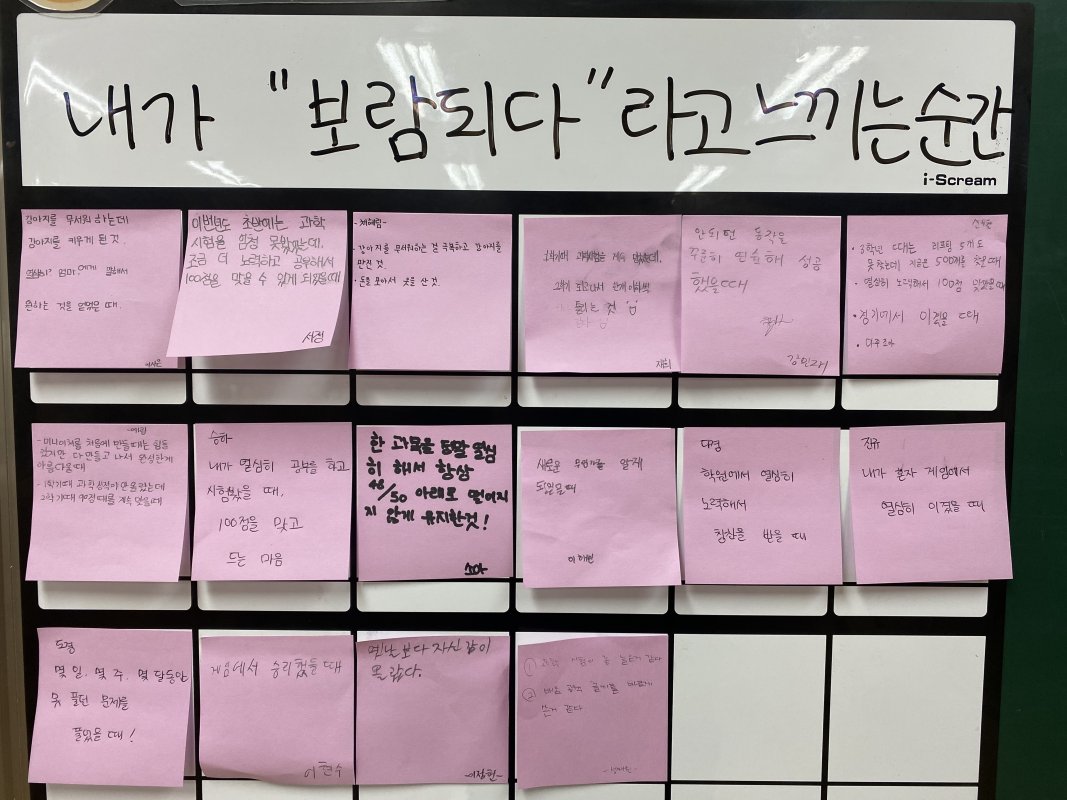 내가 "보람되다"라고 느끼는 순간
i-Scream
강아지를 무서워 하는데
강아지를 키우게 된 것.
엄마에게 말해서
원하는 것을 얻었을 때.
이번년도 초반에는 과학
시험을 엄청 못봤었는데,
조금 더 노력하고 공부해서
100점을 맞을 수 있게 되었을때
서정
-채혜림-
· 강아지를 무서워하는 걸 극복하고 강아지를
만진 것.
· 돈을 모아서 옷을 산 것.
1학기때 계속
것
안되던 동작을
꾸준히 연습해 성공
했을때
· 3학년 때는 리프팅 5개도
못찼는데 지금은 500개를 찼을때
· 열심히 노력해서 100점 맞았을때
· 경기에서 이겼을 때
-예림
- 미니어처를 처음에 만들때는 힘들
했지만 다만들고 나서 완성한게
아름다울때
- 1학기때 과학성적이 안좋았는데
2학기때 90점대를 계속 맞을때
승하
내가 열심히 공부를 하고
시험봤을 때,
100점을 맞고
드는 마음
한 과목을 정말 열심
히 해서 항상
48/50 아래로 떨어지
지 않게 유지한것!
소아
새로운 알게
되었을때
이해원
다영
학원에서 열심히
노력해서
칭찬을 받을 때
진유
내가 혼자 게임에서
열심히 이겼을 때
도경
몇 일, 몇 주, 몇 달동안
못 풀던 문제를
풀었을 때!
게임에서 승리했을 때
이현수
옛날보다 자신감이
올랐다.
-이장헌-
① 과학
② 글씨를 바르게
쓴거 같다